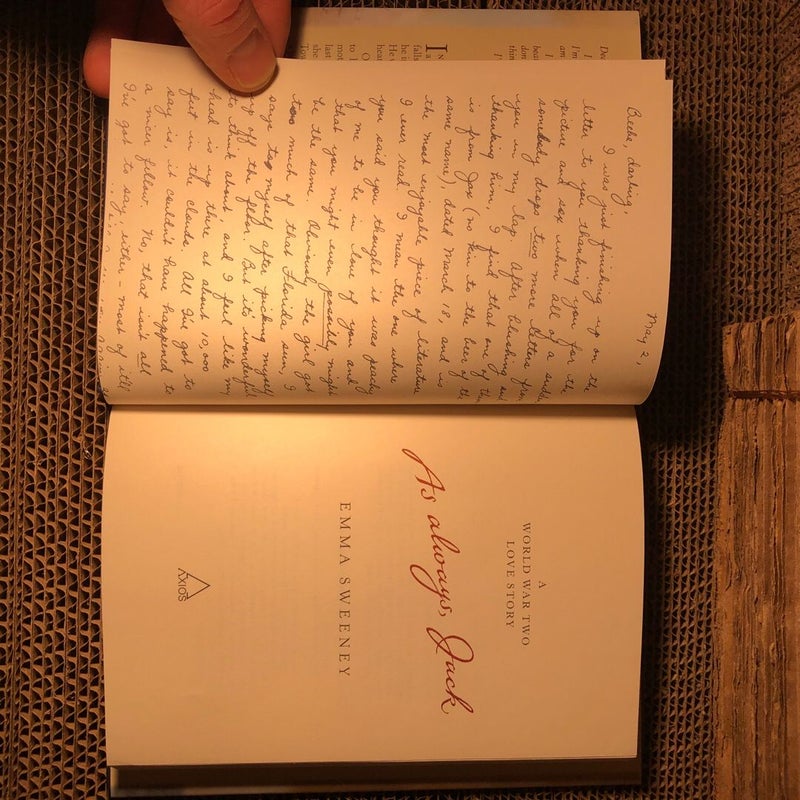 May 2,
Beebe, darling,
I was just finishing up on the
letter to you thanking you for the
picture and sox when all of a sudden
somebody drops two more letters from
you in my lap. After blushing and
thanking him, I find that one of them
is from Jax (no kin to the beer of the
same name), dated March 18, and is
the most enjoyable piece of literature
I ever read. I mean the one where
you said you thought it was
of me to be in love of you and
that you might even possibly might
be the same. Obviously the girl got
too much of that Florida sun, I
says to myself after picking myself
up off the floor. But it's wonderful
to think about and I feel like my
head is up there at about 10,000
feet in the clouds. All I've got to
say is, it couldn't have happened to
a nicer fellow. No, that isn't all
I've got to say, either - most of it'll
A
WORLD WAR TWO
LOVE STORY
As always, Jack
EMMA SWEENEY
AXIOS